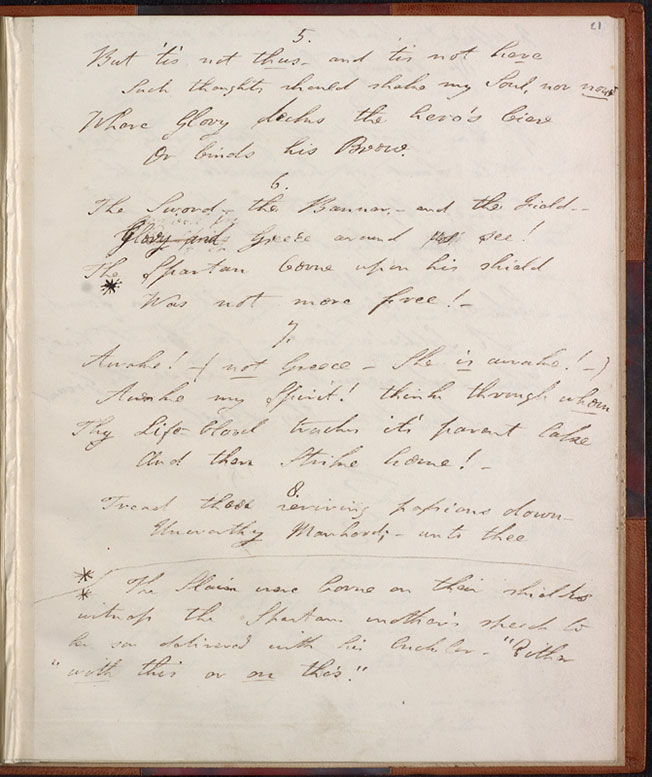 21
5.
But 'tis not thus - and 'tis not here
Such thoughts should shake my Soul, nor now
Where Glory decks the hero's bier
Or binds his Brow.
6.
The Sword, the Banner, - and the Field -
Glory and Greece around see!
The Spartan borne upon his shield
Was not more free! -
7.
Awake! - (not Greece - She is awake! -)
Awake my Spirit! think through whom
Thy Life blood tracks its parent lake
And then Strike home! -
8.
Tread those reviving passions down -
Unworthy Manhood; - unto thee
* The Slain were borne on their shields
* witness the Spartan mother's speech to
her son delivered with his buckler - "Either
"with this or on this."